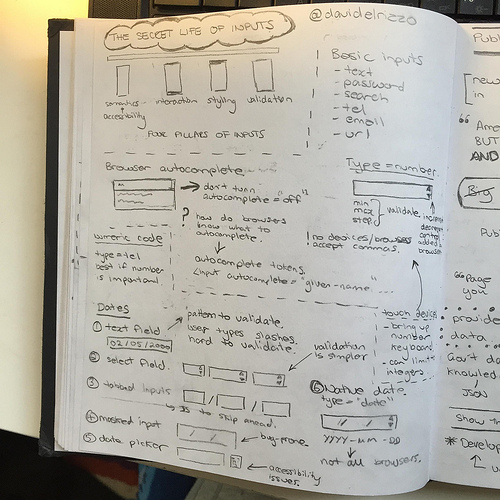 THE SECRET LIFE OF INPUTS
semantics
+
accessibility
interaction
styling
validation
FOUR PILLARS OF INPUTS
Basic inputs
- text
- password
- search
- tel
- email
- url
Browser autocomplete
don't turn
autocomplete = "off"!
? how do browsers
know what to
autocomplete.
autocomplete tokens.
<input autocomplete = "given-name"
numeric code
type = tel
best if number
is important.
Type = number.
min
max
step
validate.
! no devices/browsers
accept commas.
touch devices
- bring up
number
keyboard
- can limit
integers
Dates
① text field
02/05/2000
pattern to validate.
user types slashes.
hard to validate.
② select field.
validation
is simpler
③ tabbed inputs
/ /
JS to skip ahead.
④ masked input
/ /
bug-prone
⑤ date picker
accessibility
issues.
⑥ Native date.
type = "date"
/ /
YYYY - MM - DD
not all browsers.
Publ
in
BUT
AND
Publ
Page
you
provide
data
knowled
JSON
* Develop